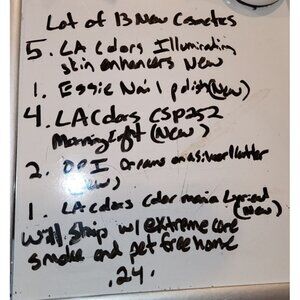 Lot of 13 New Cosmetics
5. LA Colors Illuminating
skin enhancers New
1. Essie Nail polish (New)
4. LA Colors CSP252
Morning Light (New)
2. OPI Dreams on a silver platter
(New)
1 LA Colors Color mania
(New)
Will ship w/ extreme care
smoke and pet free home
.24.